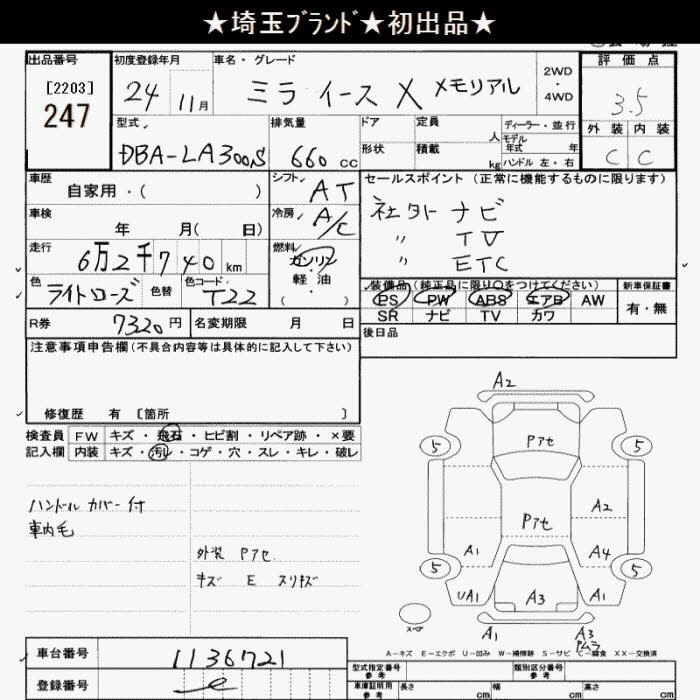 ★埼玉ﾌﾞﾗﾝﾄﾞ★初出品★
出品番号 初度登録年月 車名・グレード 2WD・4WD 評価点
[2203] 24 11月 ミラ イース X メモリアル 3.5
247
型式 排気量 ドア 定員 人 ディーラー・並行 外装 内装
DBA-LA300S 660 cc 形状 積載 kg モデル年式 年 ハンドル 左・右 C C
車歴 シフト セールスポイント (正常に機能するものに限ります)
自家用・( ) AT 社外 ナビ
車検 冷房 〃 TV
年 月( 日) A/C 〃 ETC
走行 燃料
6万2千740km ガソリン
軽油
装備品(純正品に限り○をつけてください) 新車保証書
色 色替 色コード
ライトローズ T22 ( )
PS PW ABS エアB AW 有・無
SR ナビ TV カワ
R券 7320円 名変期限 月 日 後日品
注意事項申告欄(不具合内容等は具体的に記入して下さい)
修復歴 有 [箇所 ]
検査員 FW キズ・飛石・ヒビ割・リペア跡・×要
記入欄 内装 キズ・汚レ・コゲ・穴・スレ・キレ・破レ
ハンドル カバー付
車内毛
外装 Pアセ
キズ E スリキズ
A2
5 Pアセ 5
A2
Pアセ
A1 A4
5 5
UA1 A3 A1
スペア
A1 A3
Pムラ
A-キズ E-エクボ U-凹み W-補修跡 S-サビ C-腐食 XX-交換済
車台番号 1136721
型式指定番号 参考 類別区分番号 参考
登録番号
車庫証明用 参考 長さ cm 幅 cm 高さ cm